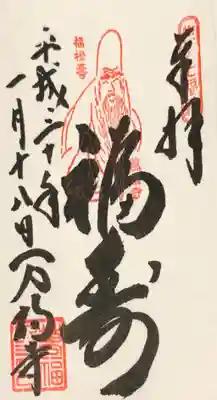 奉拝
福禄寿
福寿
平成二十年
一月十八日 万福寺